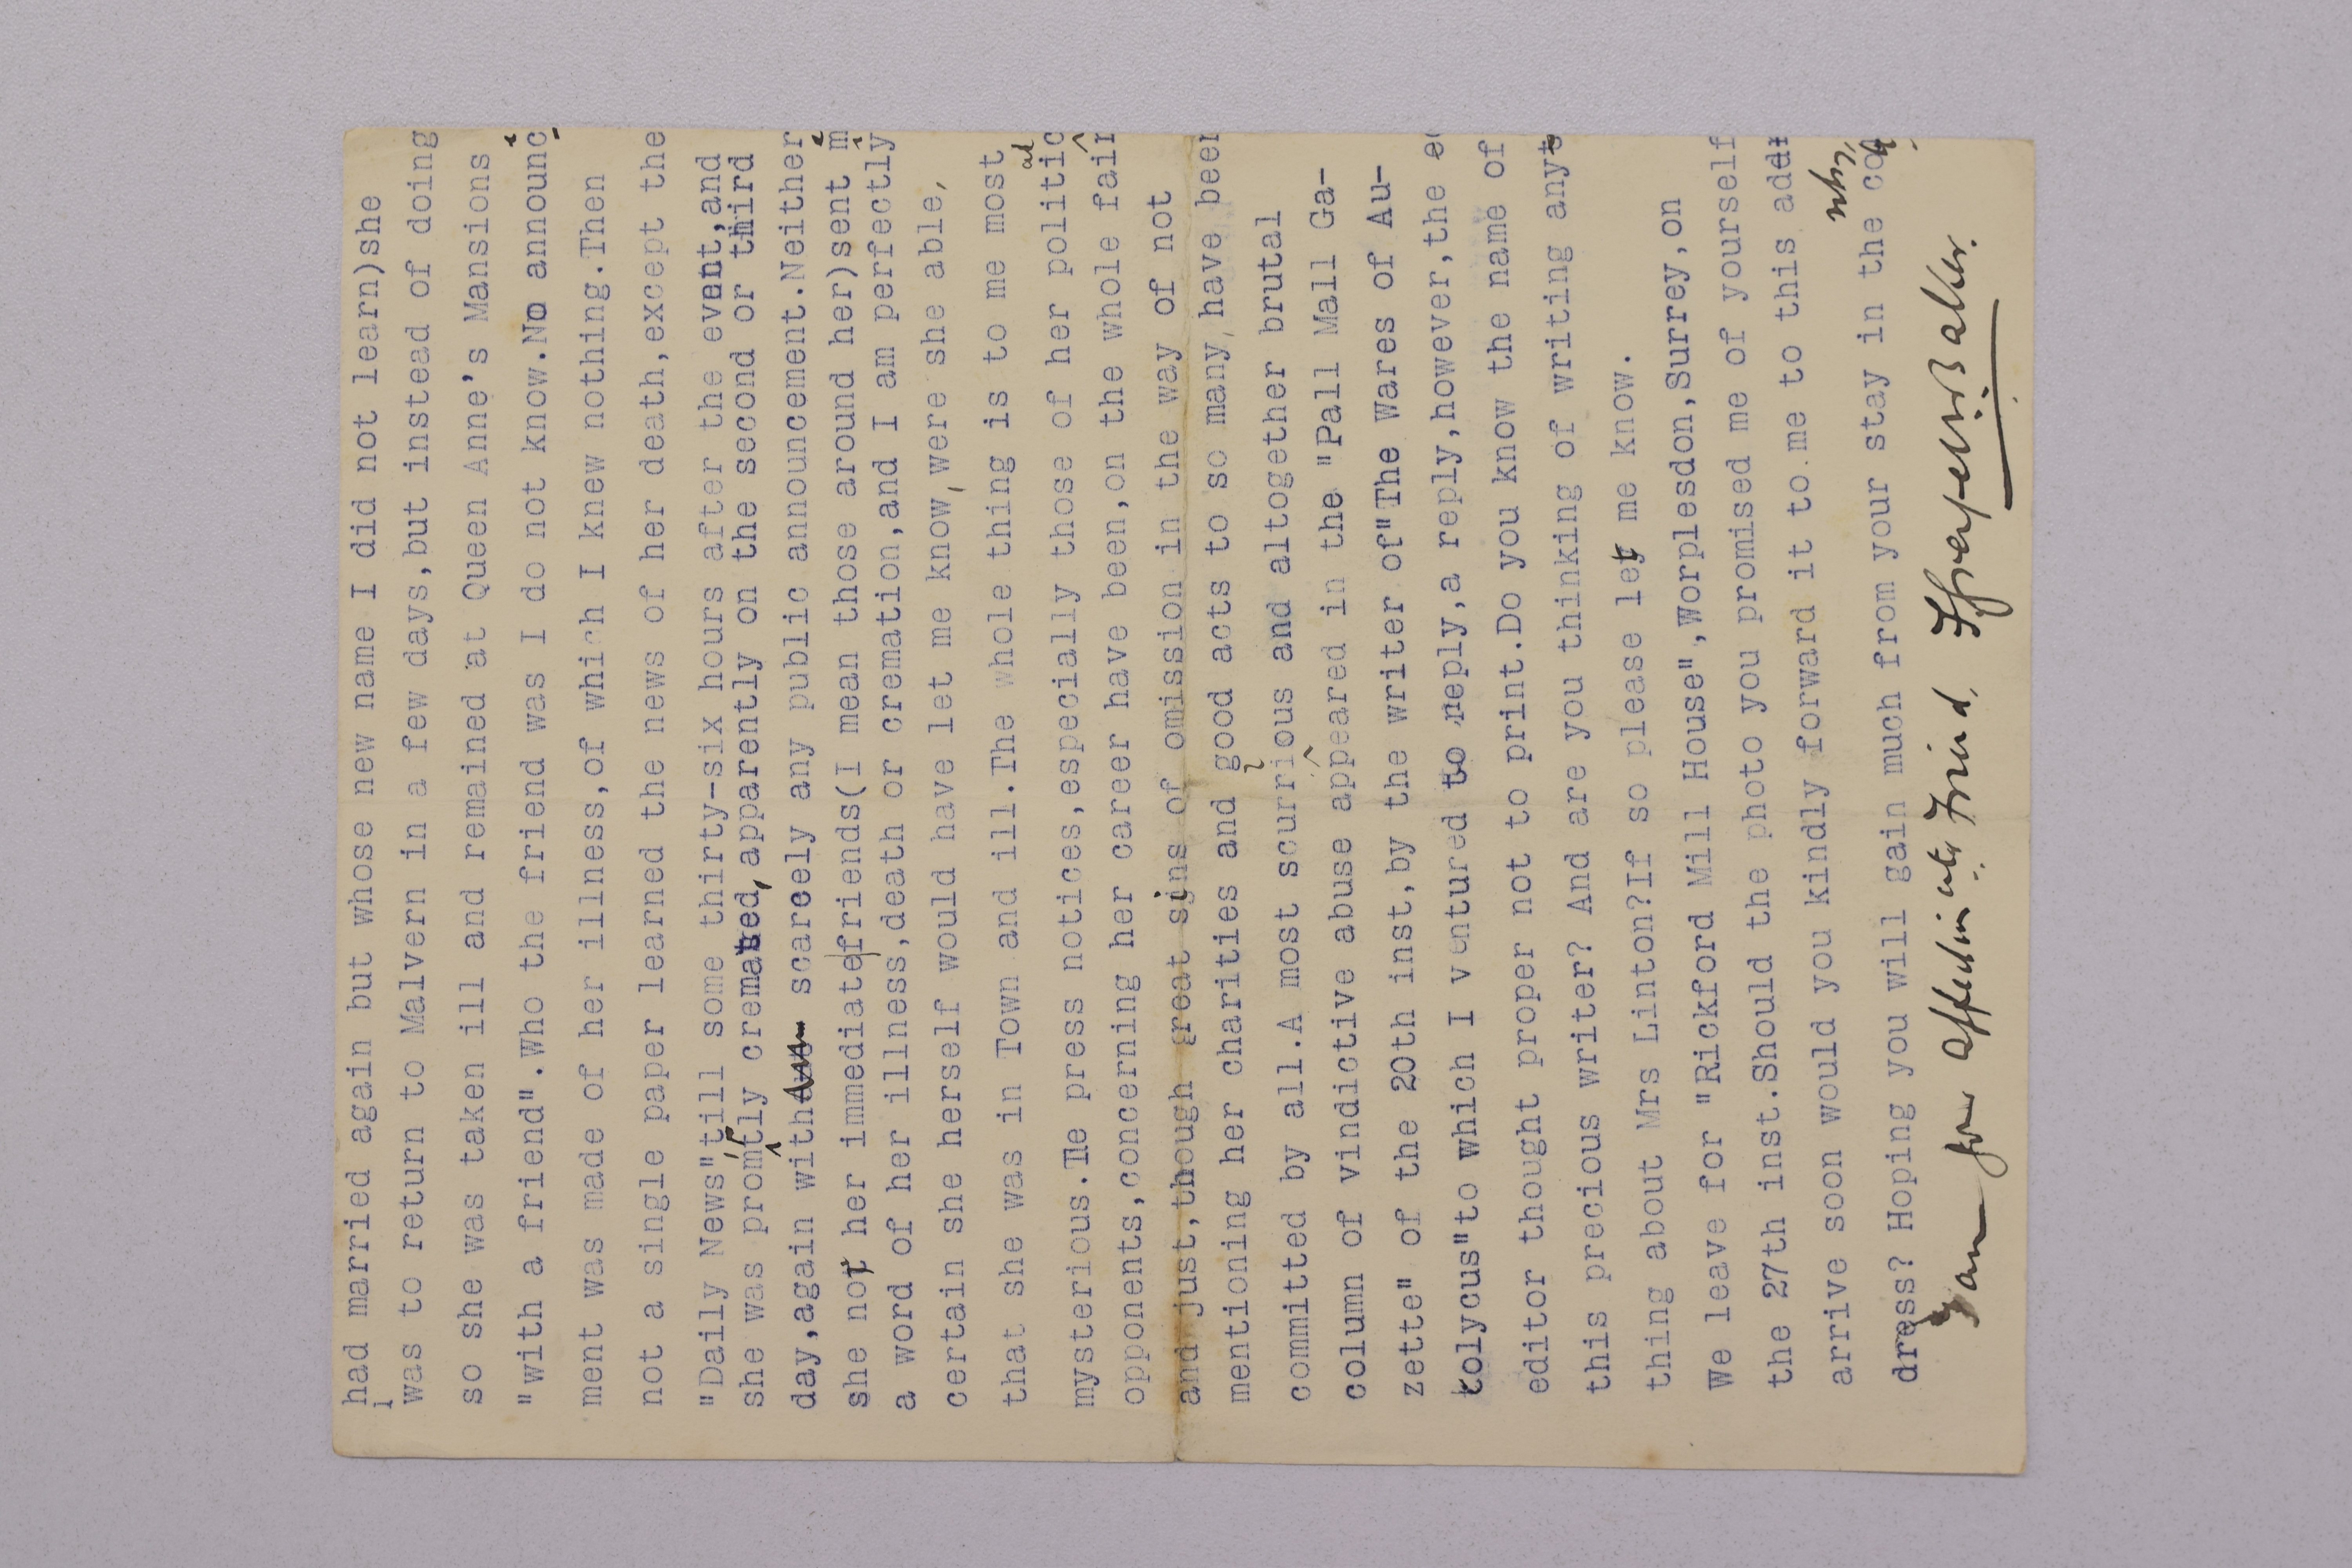 had married again but whose new name I did not learn)she
was to return to Malvern in a few days,but instead of doing
so she was taken ill and remained at Queen Anne's Mansions
"with a friend".Who the friend was I do not know.No announc
ment was made of her illness,of which I knew nothing.Then
not a single paper learned the news of her death,except the
"Daily News"till some thirty-six hours after the event,and
she was promtly cremated,apparently on the second or third
day,again with scarcely any public announcement.Neither
she not her immediate friends(I mean those around her)sent m
a word of her illness,death or cremation,and I am perfectly
certain she herself would have let me know,were she able,
that she was in Town and ill.The whole thing is to me most
mysterious.The press notices,especially those of her political
opponents,concerning her career have been,on the whole fair
and just,though great sins of omission in the way of not
mentioning her charities and good acts to so many,have been
committed by all.A most scurrious and altogether brutal
column of vindictive abuse appeared in the "Pall Mall Ga-
zette" of the 20th inst,by the writer of"The Wares of Au-
tolycus"to which I ventured to reply,a reply,however,the e
editor thought proper not to print.Do you know the name of
this precious writer? And are you thinking of writing anyt
thing about Mrs Linton?If so please let me know.
We leave for "Rickford Mill House",Worplesdon,Surrey,on
the 27th inst.Should the photo you promised me of yourself
arrive soon would you kindly forward it to me to this addr
dress? Hoping you will gain much from your stay in the country,
I am your affectionate Friend,